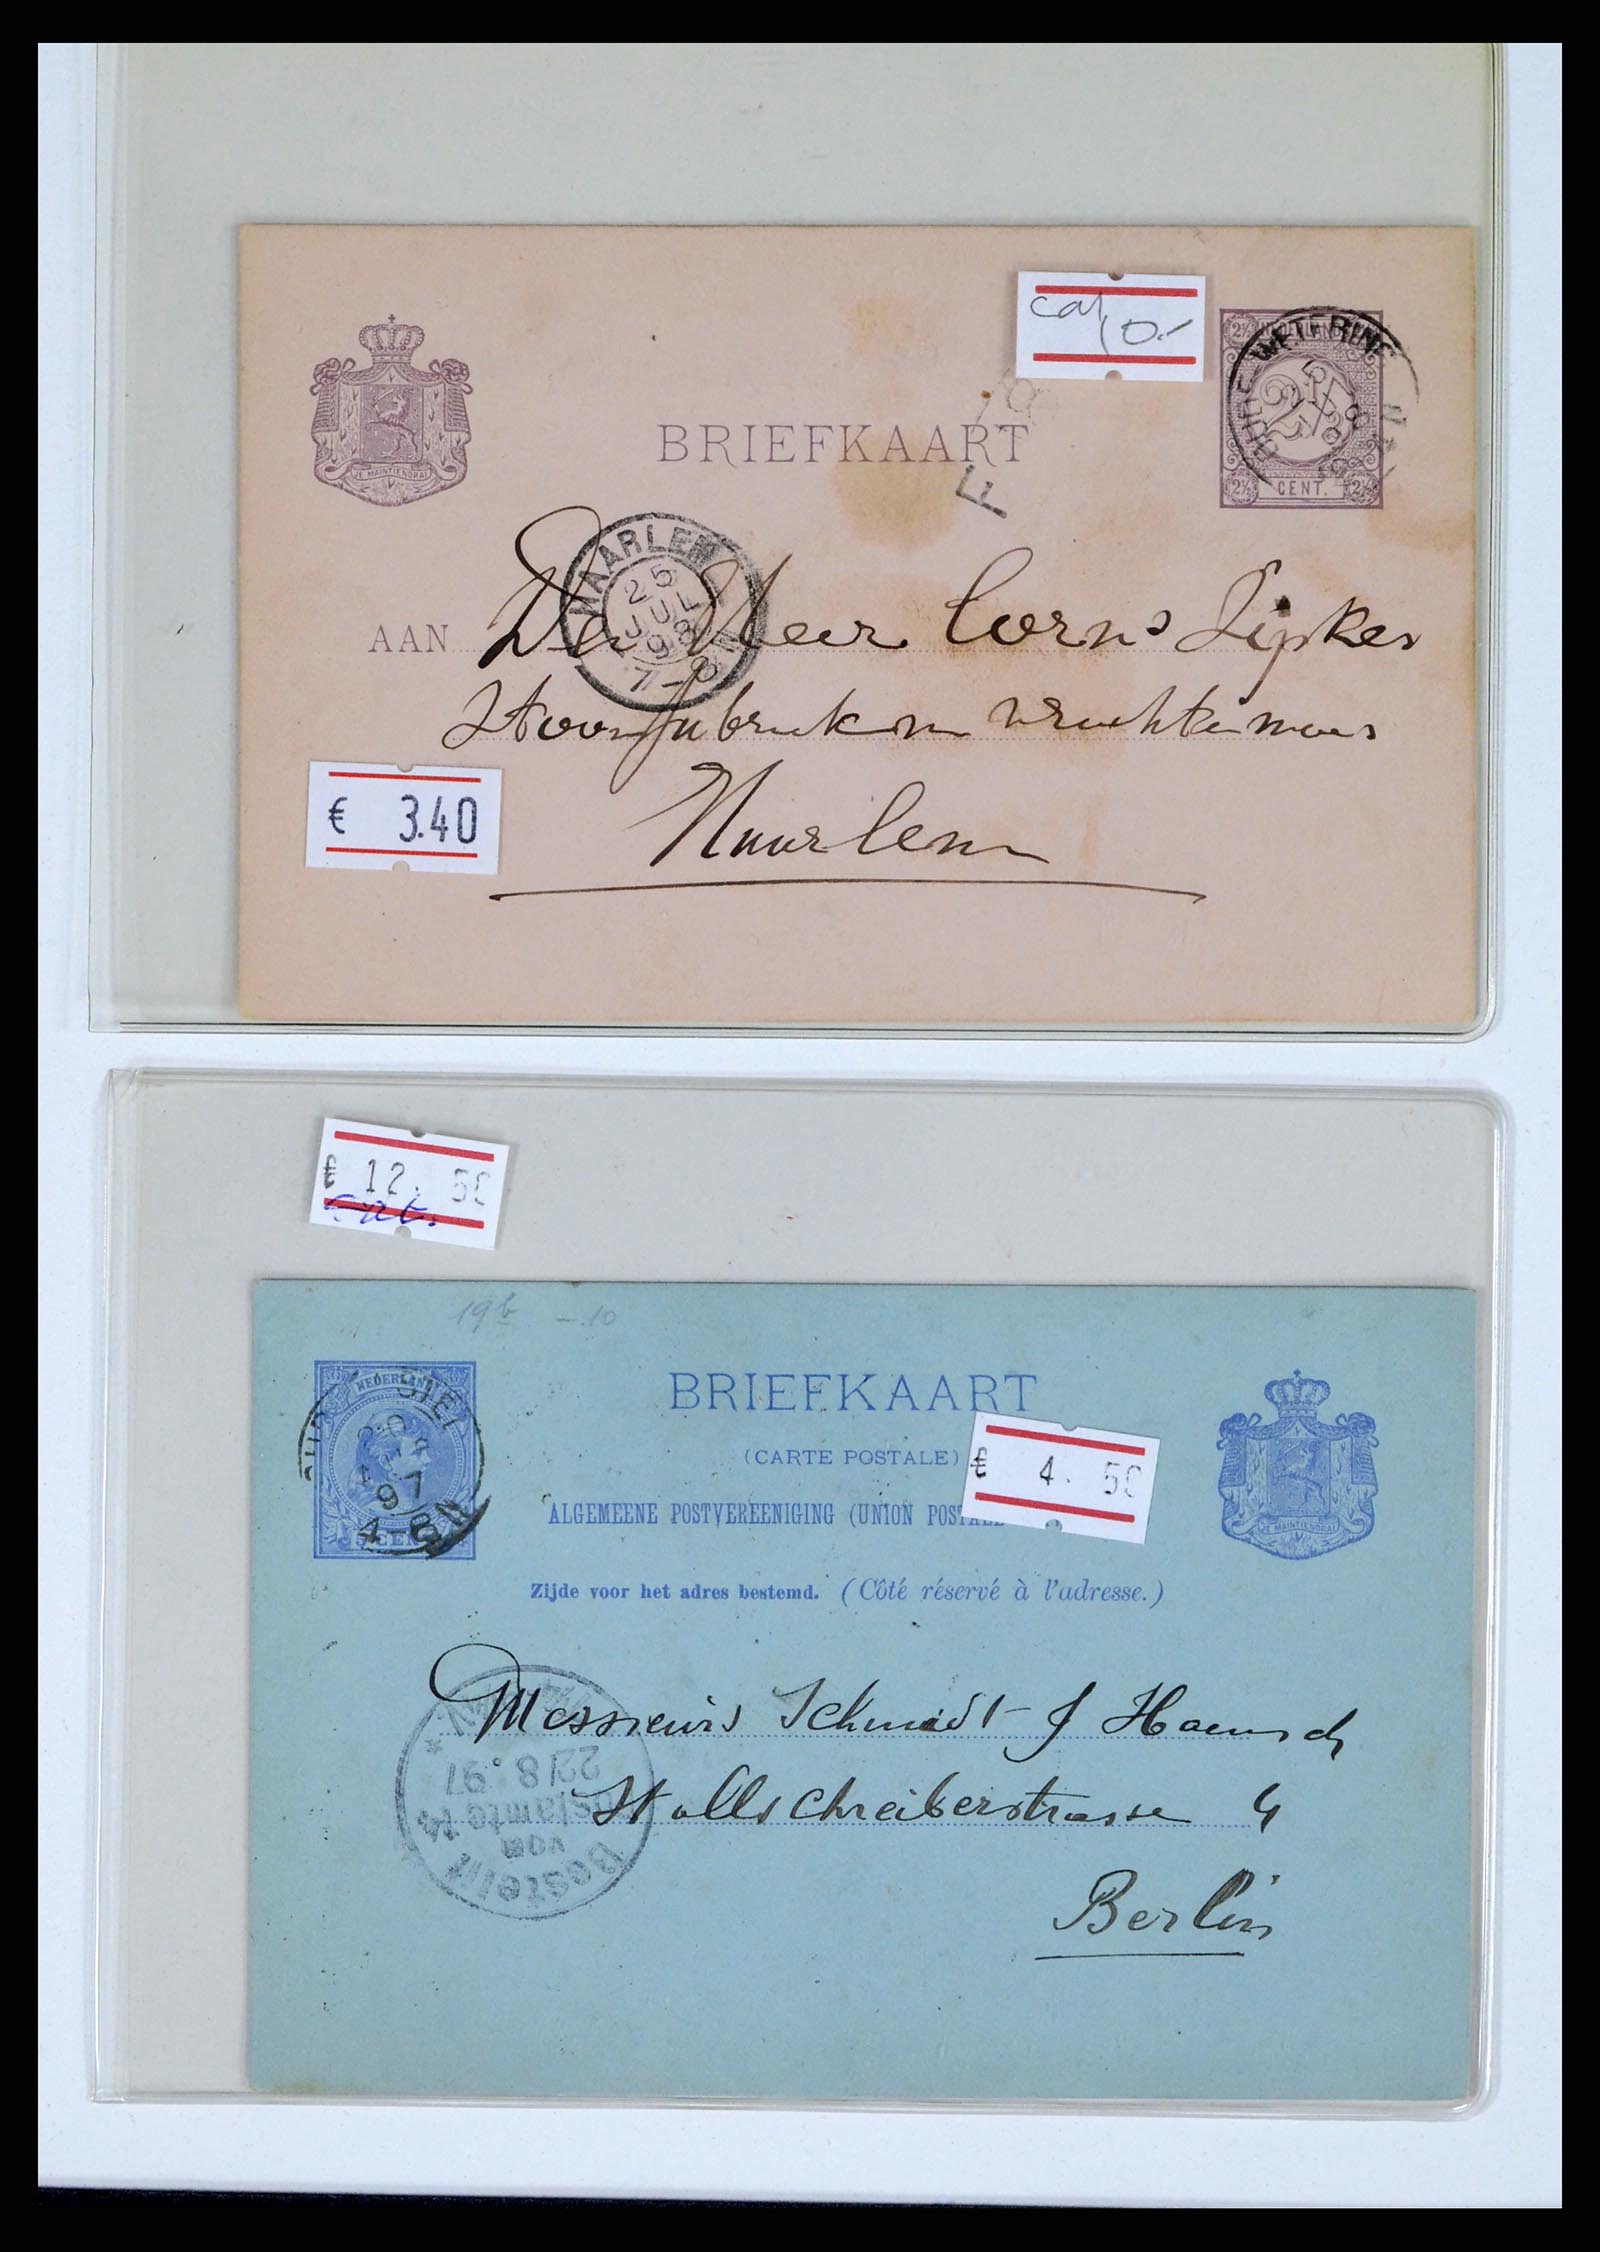 cat 10.-
2½ NEDERLAND 2½
2½ CENT. 2½
JE MAINTIENDRAI
BRIEFKAART
HAARLEM
25
JUL
98
7-8
AAN De Heer Corns Sipkes
Stoomfabriek van
Haarlem
€ 3.40
€ 12.50
cat.
19b -.10
NEDERLAND
97
5 CENT
BRIEFKAART
(CARTE POSTALE)
€ 4.50
ALGEMEENE POSTVEREENIGING (UNION POSTALE
JE MAINTIENDRAI
Zijde voor het adres bestemd. (Côté réservé à l'adresse.)
Messieurs Schmidt & Haensch
Stallschreiberstrasse 4
Berlin
Bestellt
vom
Postamte 14
22/8.97